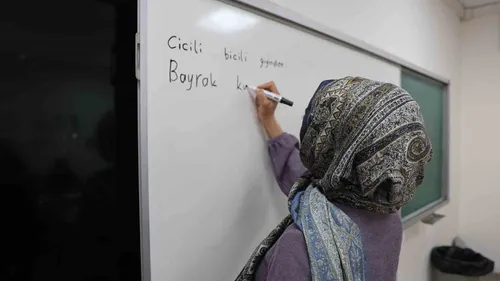 Cicili bicili giyinelim
Bayrak k